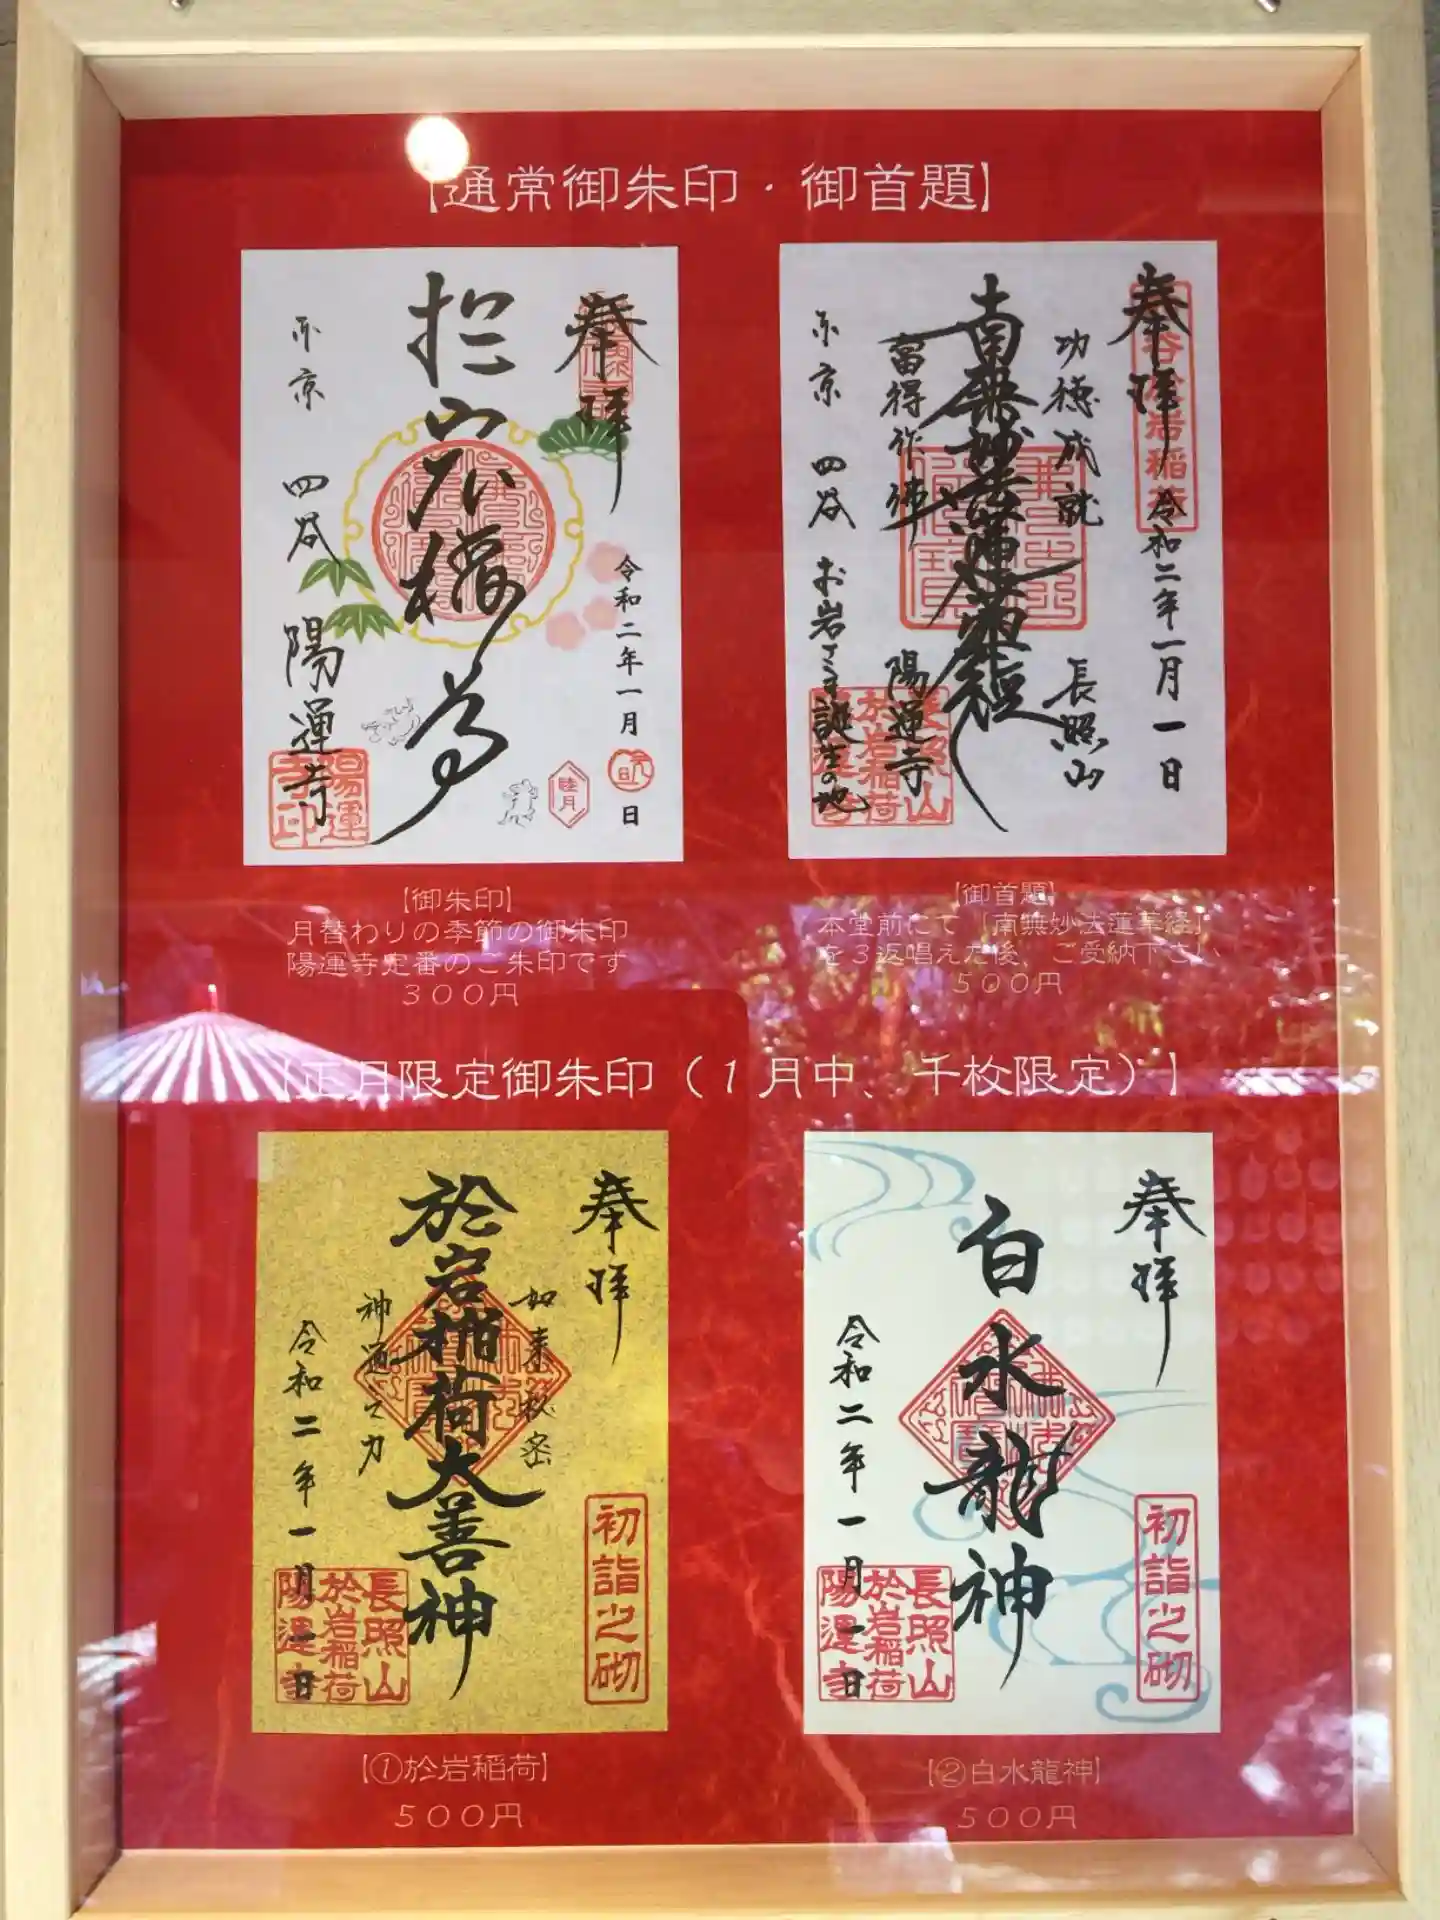 【通常御朱印・御首題】
奉拝
令和二年一月
日
睦月
東京
四谷
陽運寺
陽運寺印
奉拝
令和二年一月一日
功徳成就
長照山
南無妙法蓮華経
當得作佛
陽運寺
東京
四谷
お岩さま誕生の地
長照山
於岩稲荷
陽運寺
【御朱印】
月替わりの季節の御朱印
陽運寺定番のご朱印です
300円
【御首題】
本堂前にて「南無妙法蓮華経」
を3返唱えた後、ご受納下さい
500円
【正月限定御朱印(1月中、千枚限定)】
奉拝
初詣之砌
如来秘密
於岩稲荷大善神
神通之力
令和二年一月一日
長照山
於岩稲荷
陽運寺
奉拝
初詣之砌
白水龍神
令和二年一月一日
長照山
於岩稲荷
陽運寺
【①於岩稲荷】
500円
【②白水龍神】
500円